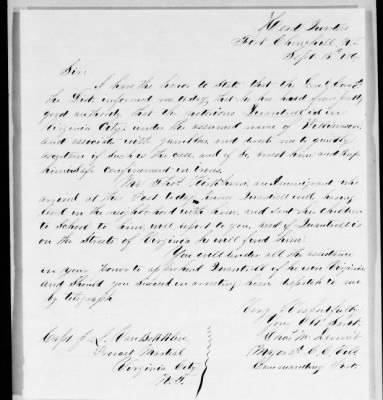 Head Quarters
Fort Churchill N.T.
Sept 15th 186
Sir
I have the honor to state that the Genl Comdg
the Dist informed me to day that he has heard from pretty
good authority that the notorious Quantrell is in
Virginia City under the assumed name of Wilkinson
and associate with gamblers and wants me to quietly
ascertain if such is the case, and if so, arrest him and keep
him safe confinement in irons.
Mr Thos Kirkham, an immigrant who
arrived at this Post to day knew Quantrell well having
lived in the neighborhood with him and sent his children
to School to him, will report to you, and if Quantrell is
on the Streets of Virginia he will find him.
You will render all the assistance
in your power to apprehend Quantrell if he is in Virginia
and should you succeed in arresting him dispatch to me
by telegraph
Very Respectfully
Your Obt Servt
Chas M
Major C.C. Vols
Commanding Post
Capt J. L.
Provost Martial
Virginia City
N.T.